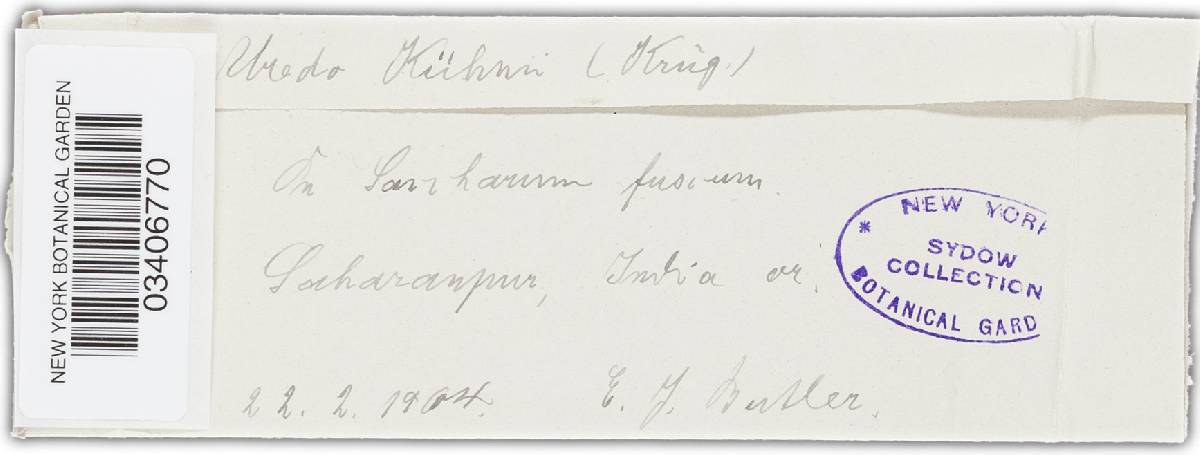 Uredo Kühnii (Krüg.)
On Saccharum fuscum.
Saharanpur, India or.
22. 2. 1904. E. J. Butler.
NEW YORK BOTANICAL GARDEN
03406770
* NEW YORK
SYDOW
COLLECTION
BOTANICAL GARD